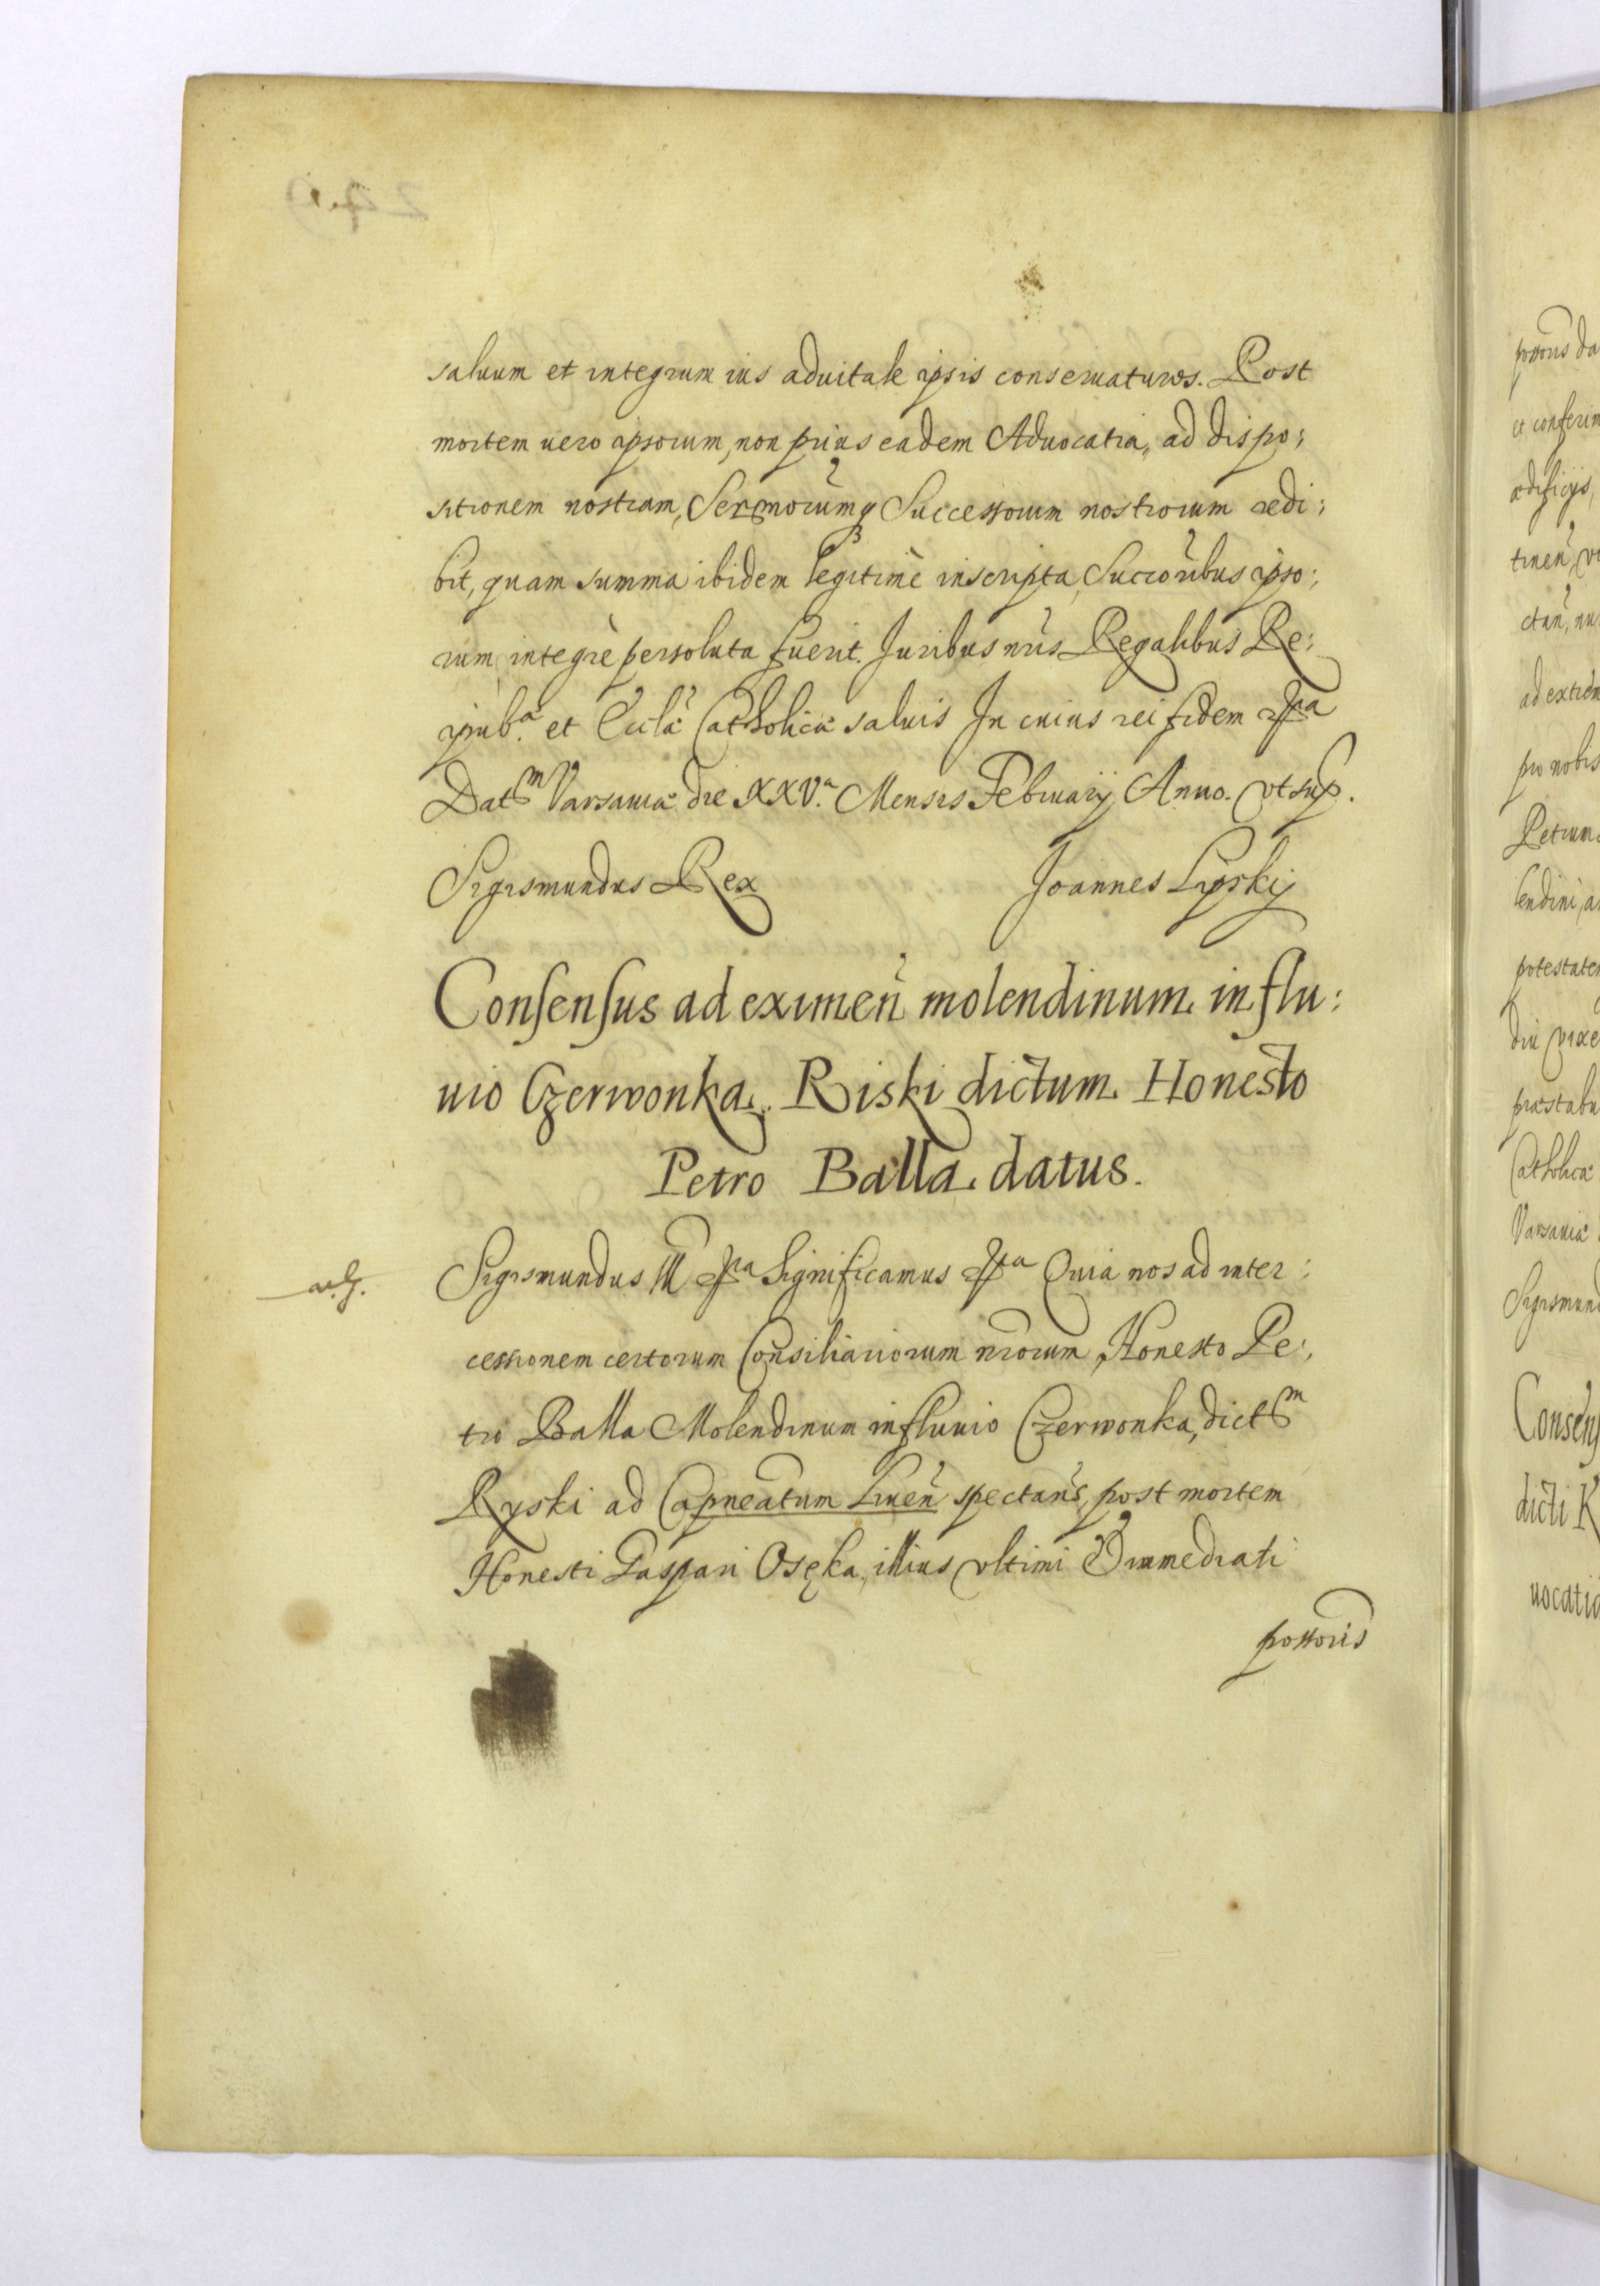 saluum et integrum ius aduitale ipsis conseruaturos. Post
mortem uero ipsorum, non prius eadem Aduocatia, ad dispo:
sitionem nostram, Sermorumq Successorum nostrorum redi:
bit, quam summa ibidem legitime inscripta, Succoribus ipso:
rum, integre persoluta fuerit. Juribus nris Regalibus Re:
ipub.ae et Eccla Catholicæ saluis In cuius rei fidem
Datm Varsauiæ die XXV.a Mensis Februarij Anno. vt sup.
Sigismundus Rex Joannes Lipskij
Consensus ad eximen molendinum in flu:
uio Czerwonka. Riski dictum Honesto
Petro Balla datus.
Sigismundus III Significamus Quia nos ad inter:
cessionem certorum Consiliariorum nrorum, Honesto Pe:
tro Balla Molendinum in fluuio Czerwonka, dictm
Ryski ad Capneatum Liuen spectans, post mortem
Honesti Gaspari Osęka, illius vltimi & immediati
possoris
possoris da
et conferim
ædificijs,
tinen, vt
ctan, nu
ad extrem
pro nobis
Petrum
lendini, a
potestatem
diu vixe
præstabu
Catholicæ
Varsauiæ
Sigismund
Consens
dicti R
uocatio